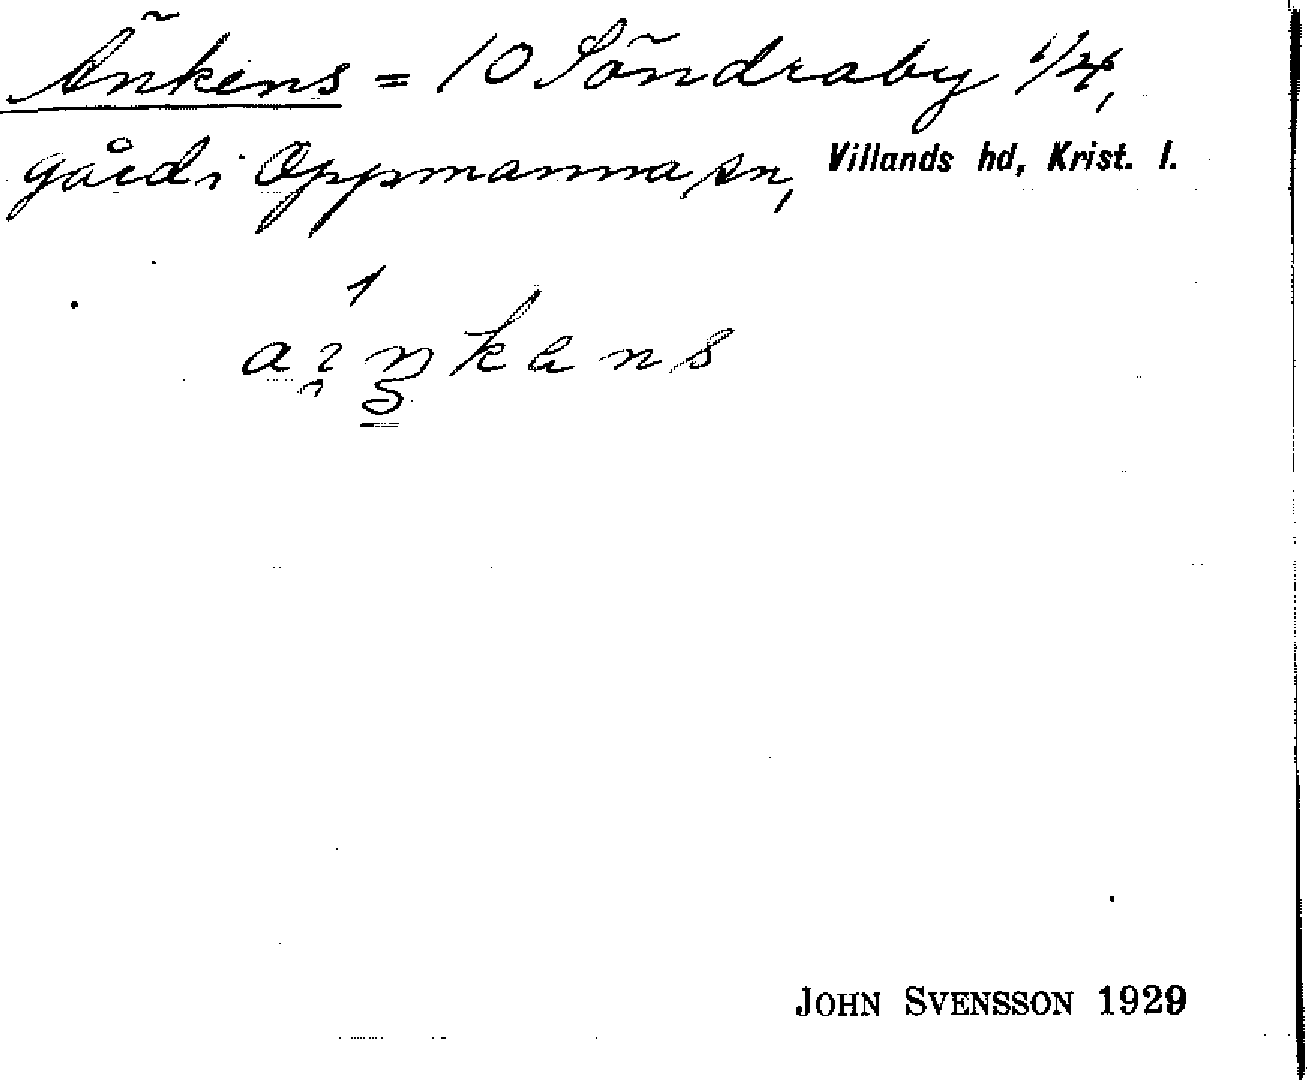 Änkens = 10 Söndraby 1/4,
gård i Oppmanna sn, Villands hd, Krist. l.
JOHN SVENSSON 1929